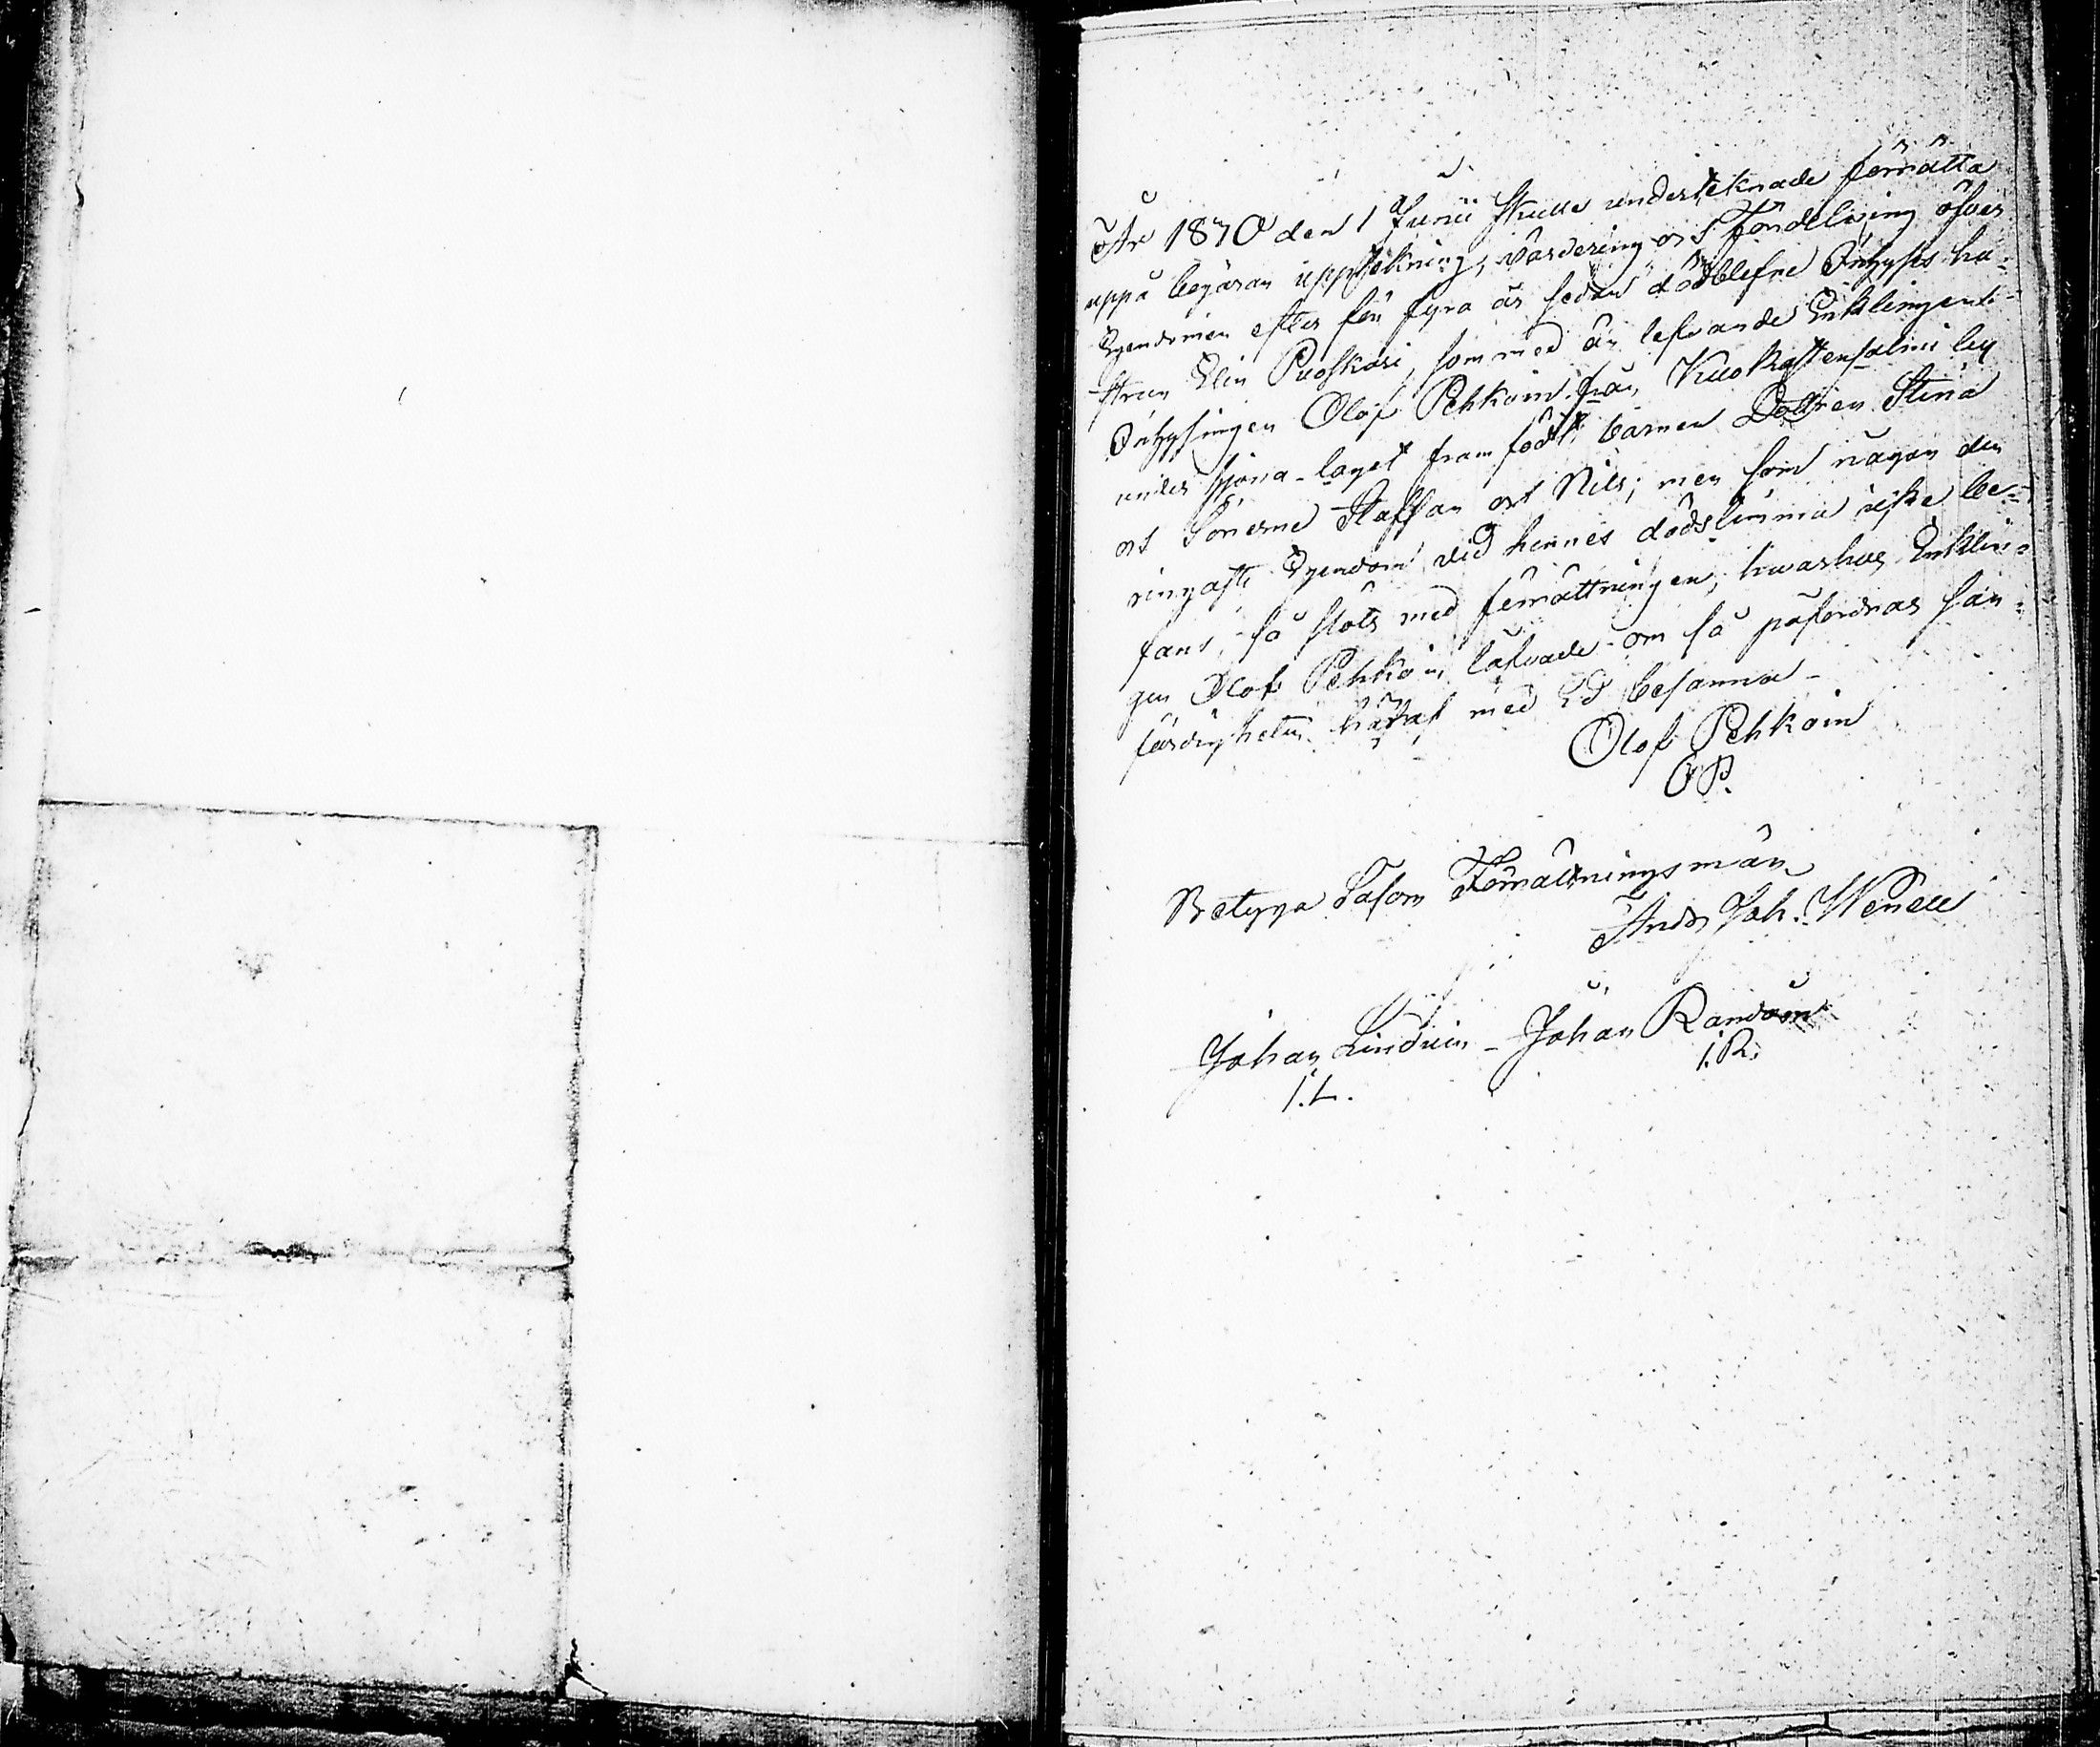 År 1870 den 1 Junii skulle underteknade förrätta
uppå begäran uppteckning, värdering och Fördelning öfver
Egendomen efter för fyra år sedan dödblefne Inhyses hu-
strun Elin Puoskari, som med än lefvande Enklingen
Inhysingen Olof Pehkoin från Kuokattensalmi by
under hjona-laget fram födt barnen Dottren Stina
och Sönerne Staffan och Nils; men som någon den
ringaste Egendom vid hennes dödstimma icke be-
fans, så slöts med förrättningen, hvarhos Enklin-
gen Olof Pehkoin låfvade om så påfordras san-
färdigheten häraf med Ed besanna -
Olof Pehkoin
O P.
Betyga Såsom Förrättningsmän
And: Joh. Wenell
Johan Lindrin - Johan Randoin
I. L. I. R.